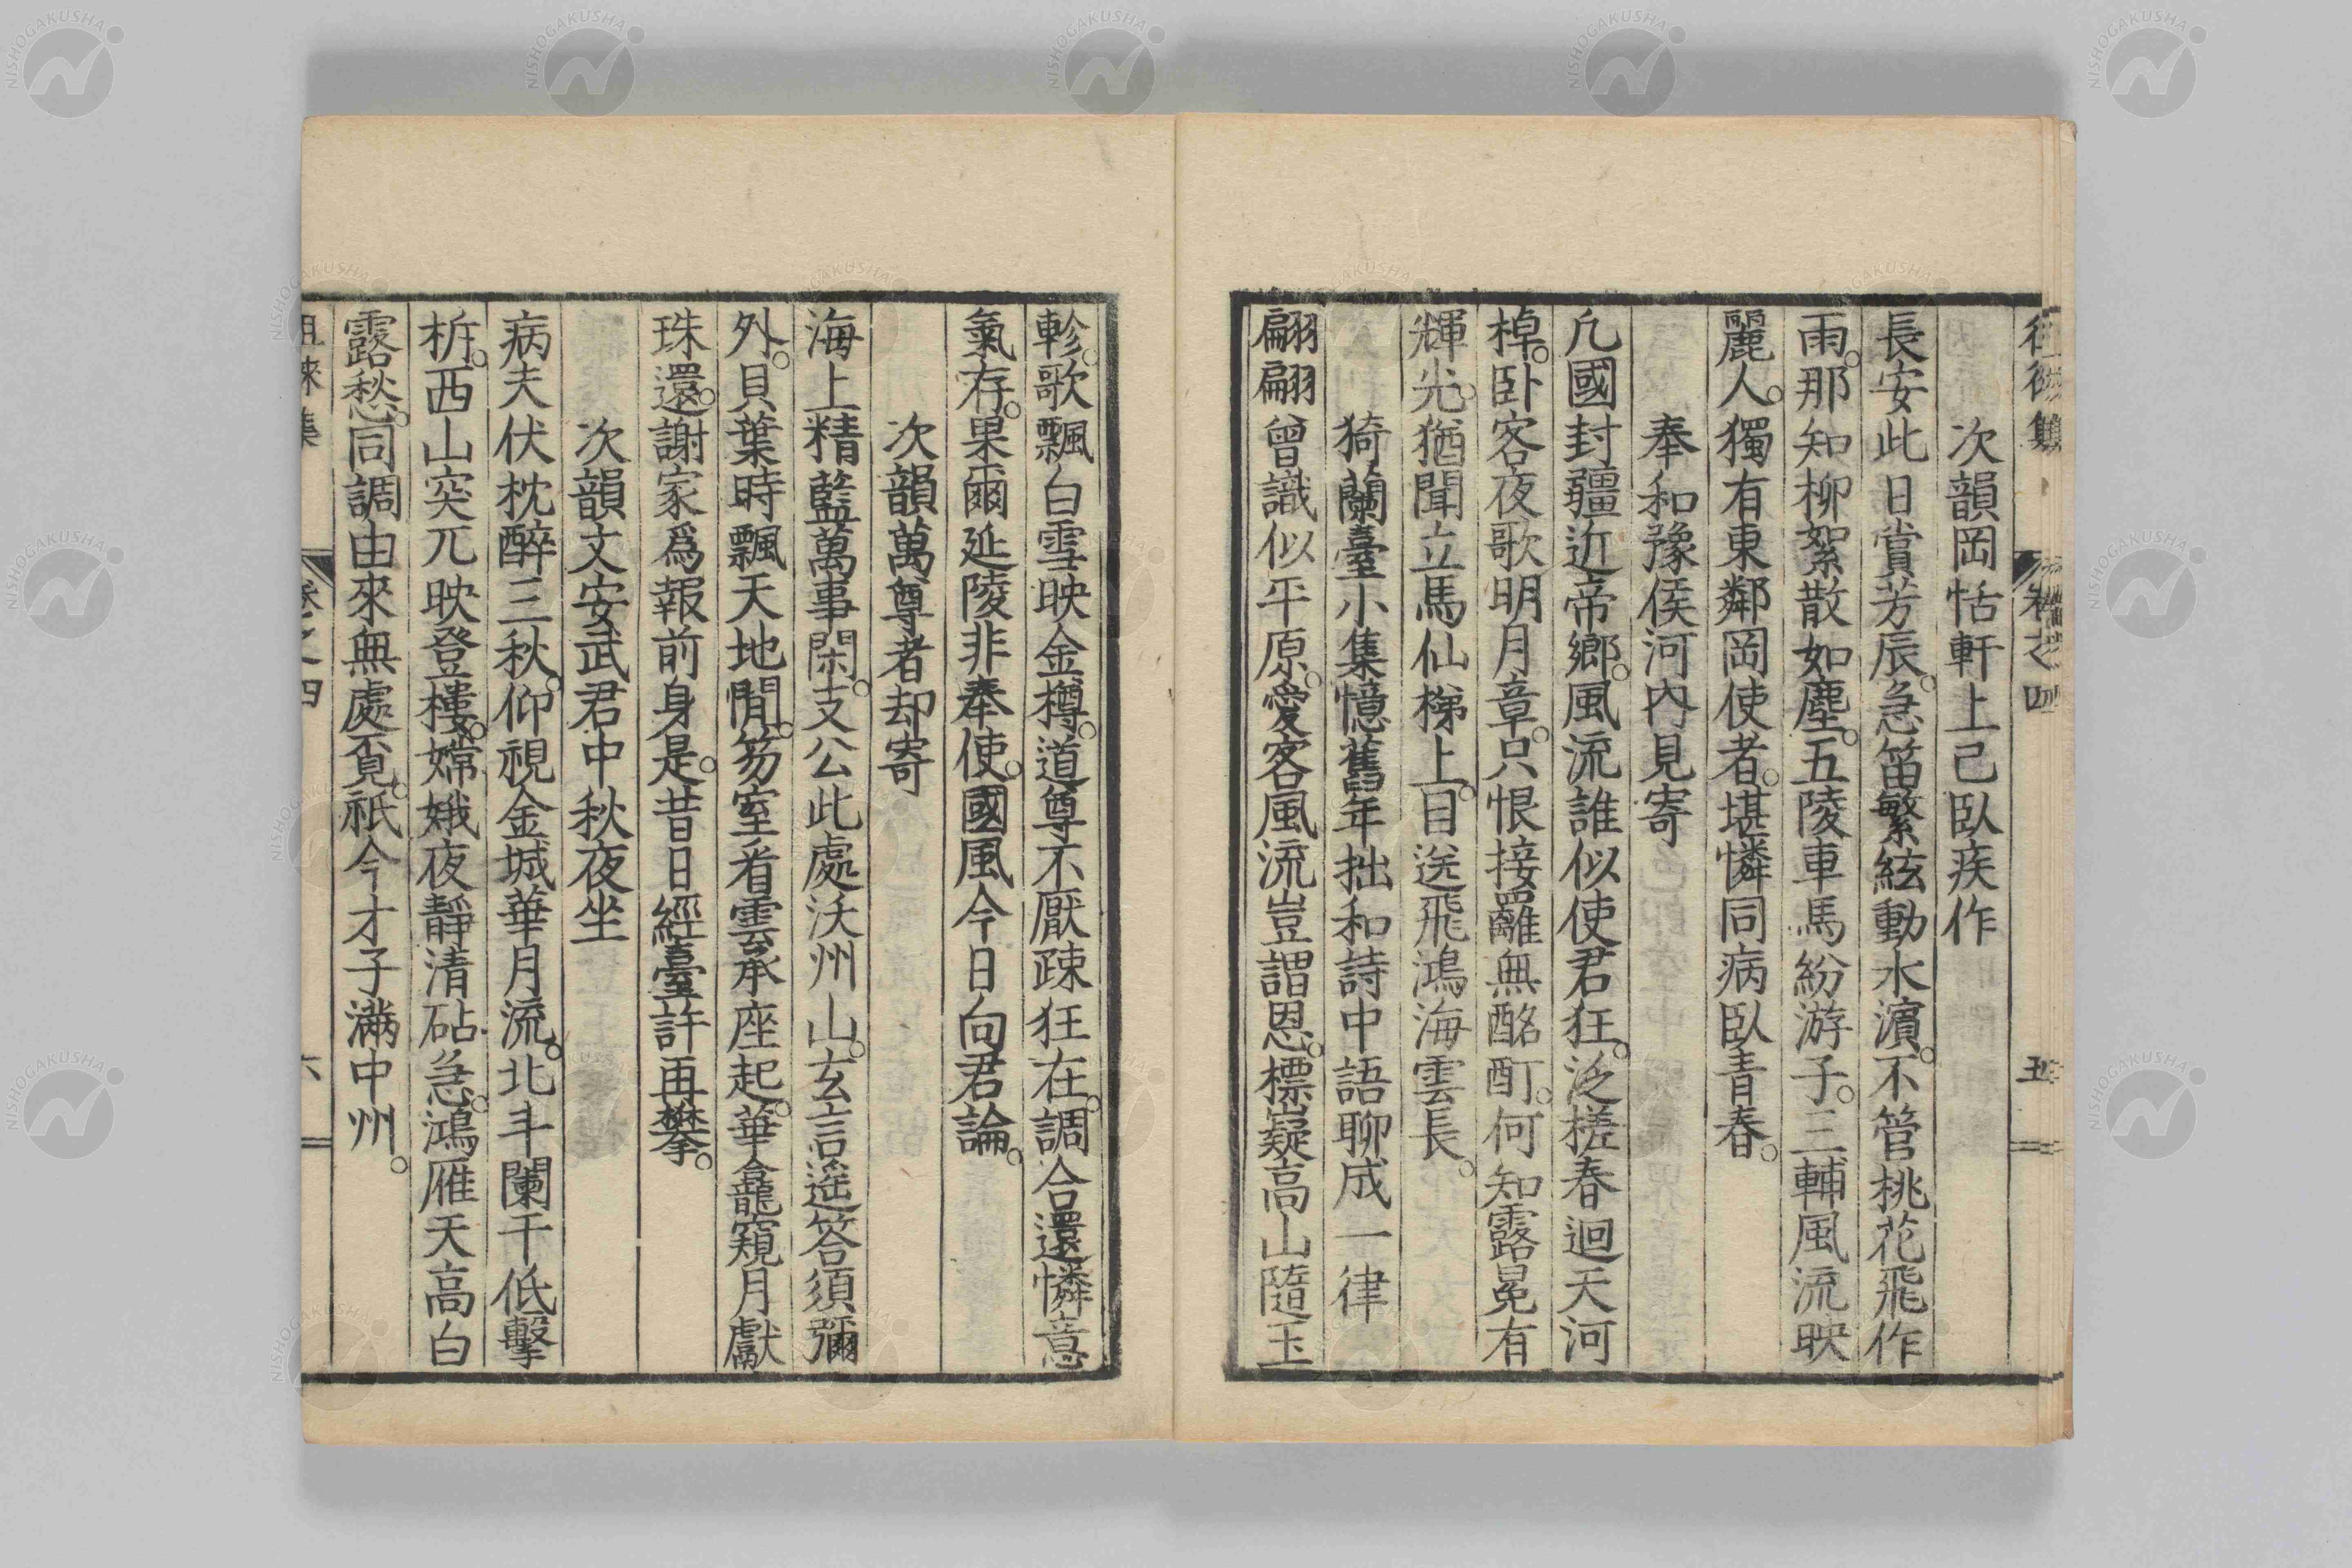 徂徠集 卷之四 五
次韻岡恬軒上己臥疾作
長安此日賞芳辰。急笛繁絃動水濱。不管桃花飛作
雨。那知柳絮散如塵。五陵車馬紛游子。三輔風流映
麗人。獨有東鄰岡使者。堪憐同病臥青春。
奉和豫侯河內見寄
凢國封疆近帝鄉。風流誰似使君狂。泛槎春迴天河
棹。卧客夜歌明月章。只恨接䍦無酩酊。何知露冕有
輝光。猶聞立馬仙梯上。目送飛鴻海雲長。
猗蘭臺小集憶舊年拙和詩中語聊成一律
翩翩曾識似平原。愛客風流豈謂恩。標嶷高山隨玉
軫。歌飄白雪映金樽。道尊不厭疎狂在。調合還憐意
氣存。果爾延陵非奉使。國風今日向君論。
次韻萬尊者却寄
海上精藍萬事閑。支公此處沃州山。玄言遥答須彌
外。貝葉時飄天地閒。笏室看雲承座起。華龕窺月獻
珠還。謝家爲報前身是。昔日經臺許再攀。
次韻文安武君中秋夜坐
病夫伏枕醉三秋。仰視金城華月流。北斗闌干低擊
柝。西山突兀映登樓。嫦娥夜靜清砧急。鴻雁天高白
露愁。同調由來無處覔。祇今才子滿中州。
徂徠集 卷之四 六
NISHOGAKUSHA